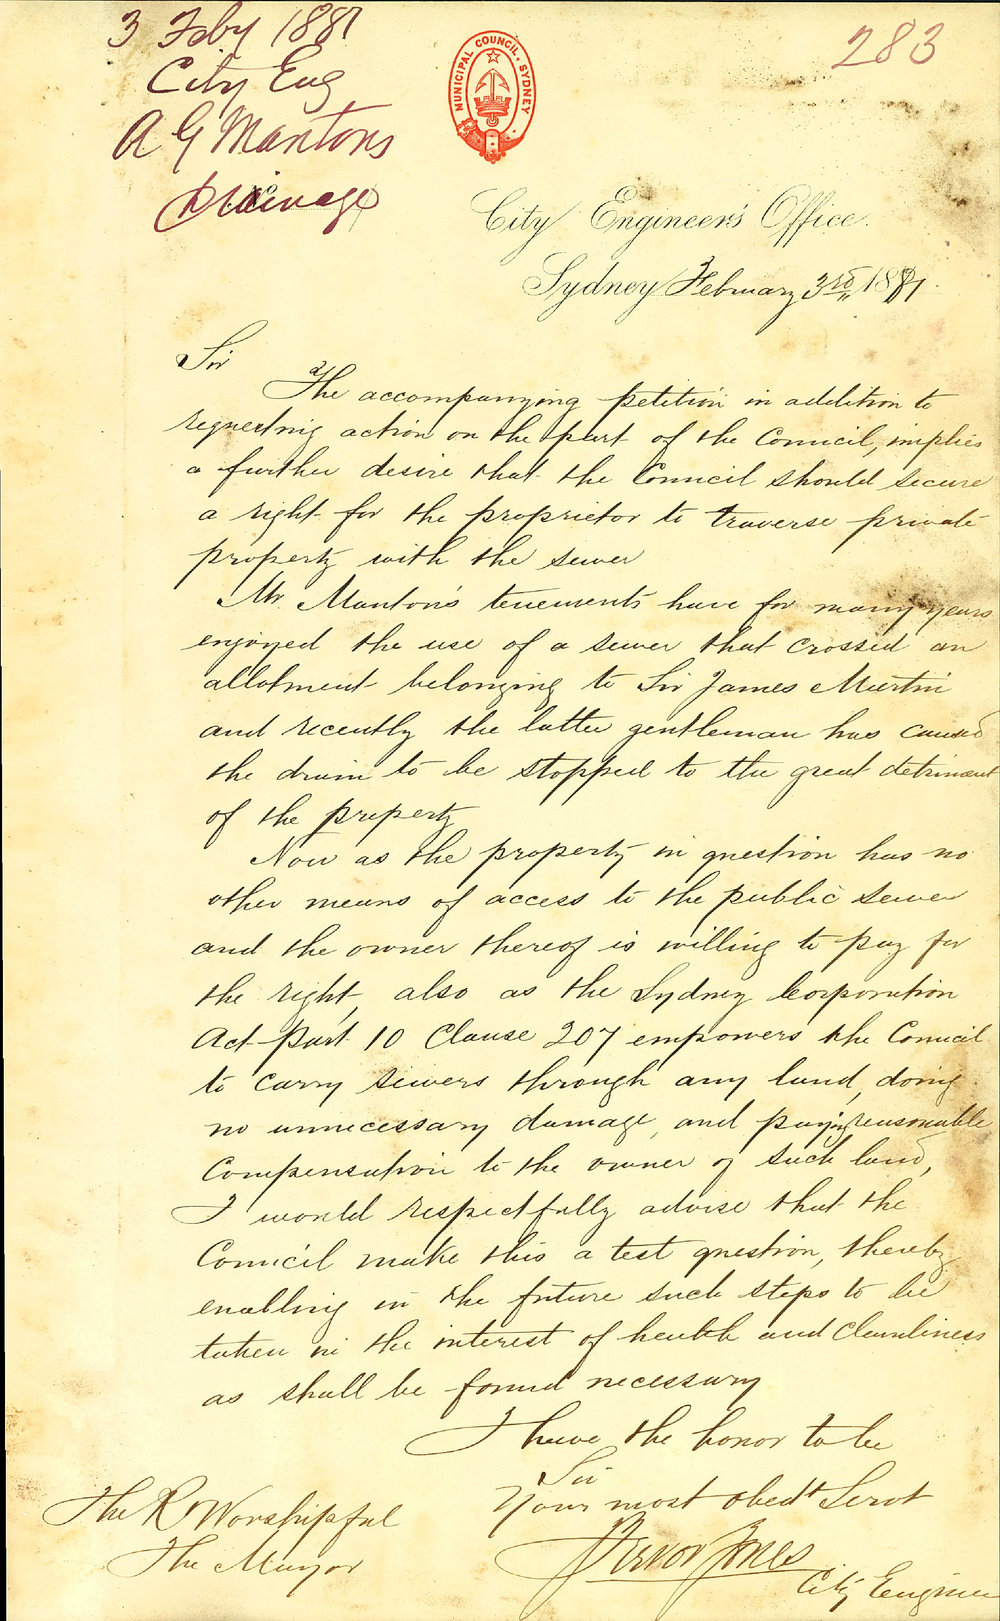 3 Feby 1881
City Eng
A G Mantons
Drainage
MUNICIPAL COUNCIL, SYDNEY
283
City Engineer's Office.
Sydney February 3rd 1881.
Sir
The accompanying petition in addition to
requesting action on the part of the Council, implies
a further desire that the Council should secure
a right for the proprietor to traverse private
property with the sewer
Mr. Manton's tenements have for many years
enjoyed the use of a sewer that crossed an
allotment belonging to Sir James Martin
and recently the latter gentleman has caused
the drain to be stopped to the great detriment
of the property
Now as the property in question has no
other means of access to the public sewer
and the owner thereof is willing to pay for
the right, also as the Sydney Corporation
Act Part 10 Clause 207 empowers the Council
to carry sewers through any land, doing
no unnecessary damage, and paying reasonable
Compensation to the owner of such land,
I would respectfully advise that the
Council make this a test question, thereby
enabling in the future such steps to be
taken in the interest of health and cleanliness
as shall be found necessary
I have the honor to be
Sir
Your most obedt Servt
Trevor Jones
City Engineer
The Rt Worshipful
The Mayor